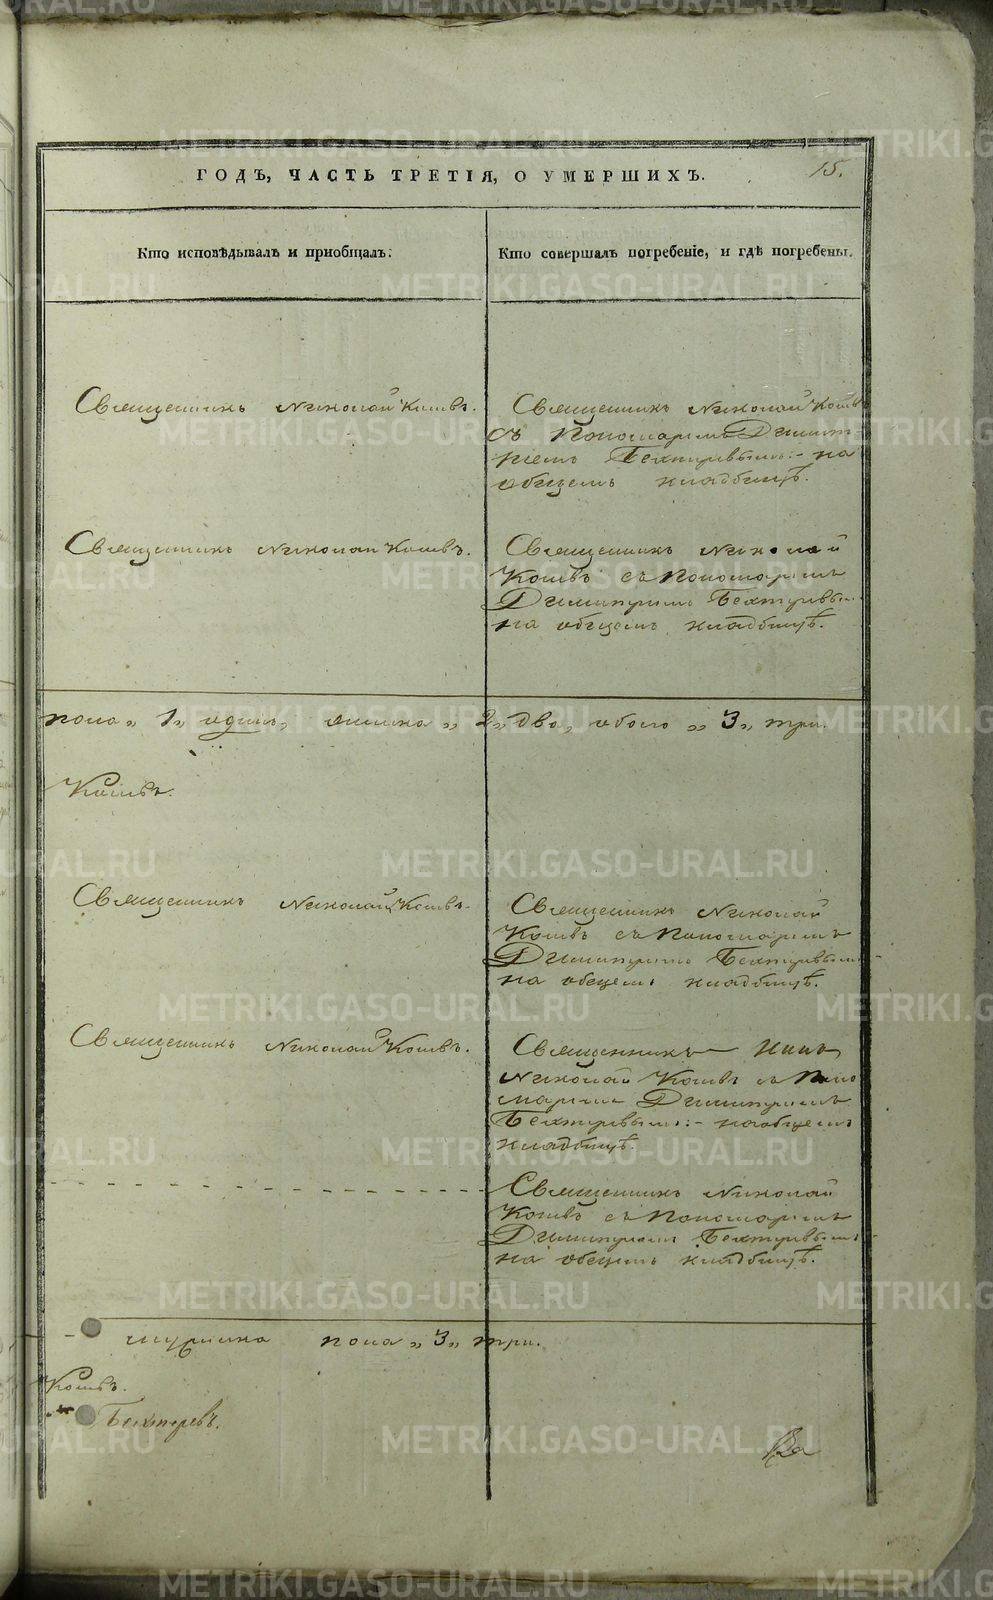 15.
ГОДЪ, ЧАСТЬ ТРЕТІЯ, О УМЕРШИХЪ.
Кто исповѣдывалъ и приобщалъ.
Кто совершалъ погребеніе, и гдѣ погребены.
Священникъ Николай
Священникъ Николай
съ Пономаремъ Димит-
ріемъ Бехтеревымъ:- на
общемъ кладбищѣ.
Священникъ Николай
Священникъ Николай
съ Пономаремъ
Димитріемъ Бехтеревым
на общемъ кладбищѣ.
пола „ 1„ одинъ, женска „ 2„ два, обоего „ 3„ три.
Священникъ Николай
Священникъ Николай
съ Пономаремъ
Димитріемъ Бехтеревым
на общемъ кладбищѣ.
Священникъ Николай
Священникъ
Николай съ Поно
маремъ Димитріемъ
Бехтеревымъ:- на общемъ
кладбищѣ.
Священникъ Николай
съ Пономаремъ
Димитріемъ Бехтеревым
на общемъ кладбищѣ.
мужеска пола „ 3„ три.
Бехтеревъ.
METRIKI.GASO-URAL.RU